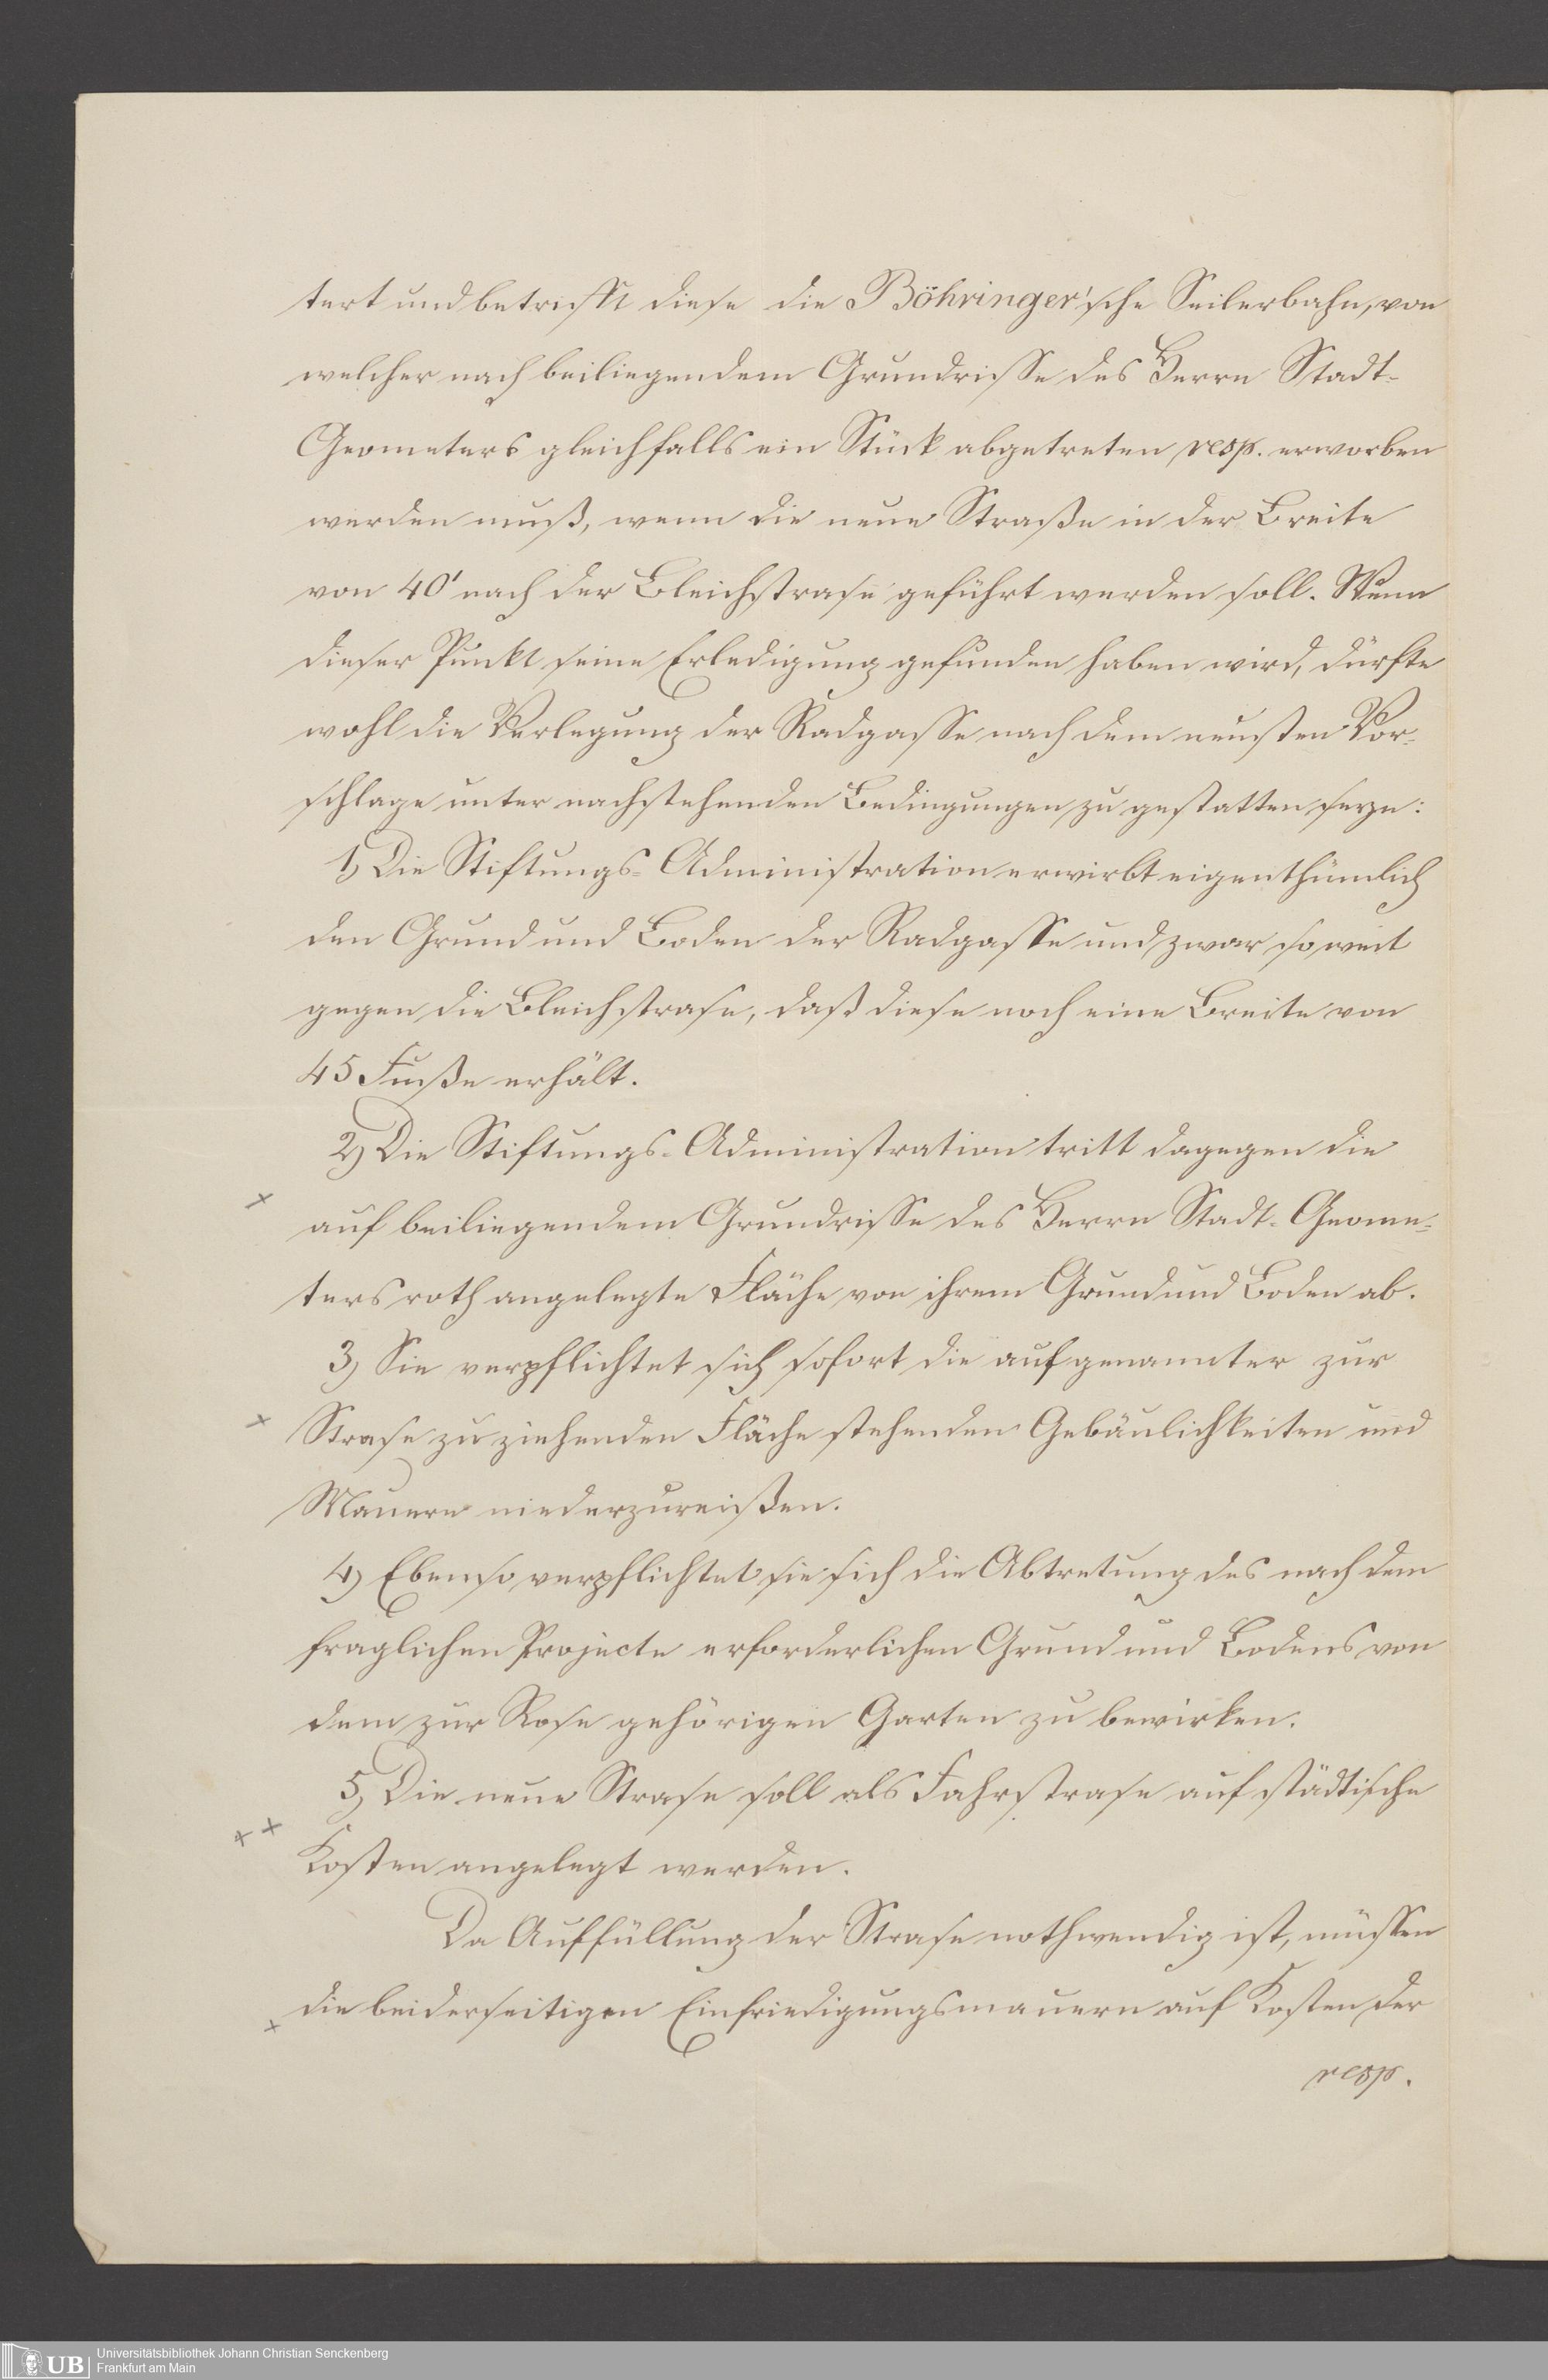 tert und betrifft diese die Böhringer'sche Seilerbahn, von
welcher nach beiliegendem Grundrisse des Herrn Stadt-
Geometers gleichfalls ein Stück abgetreten resp. erworben
werden muß, wenn die neue Straße in der Breite
von 40' nach der Bleichstrase geführt werden soll. Wenn
dieser Punkt seine Erledigung gefunden haben wird, dürfte
wohl die Verlegung der Radgasse nach dem neusten Vor-
schlage unter nachstehenden Bedingungen zu gestatten seyn:
1) Die Stiftungs-Administration erwirbt eigenthümlich
den Grund und Boden der Radgasse und zwar so weit
gegen die Bleichstrase, daß diese noch eine Breite von
45 Fuße erhält.
2) Die Stiftungs-Administration tritt dagegen die
x
auf beiliegendem Grundrisse des Herrn Stadt-Geome-
ters roth angelegte Fläche von ihrem Grund und Boden ab.
3) Sie verpflichtet sich sofort die auf genannter zur
x
Strase zu ziehenden Fläche stehenden Gebäulichkeiten und
Mauern niederzureißen.
4) Ebenso verpflichtet sie sich die Abtretung des nach dem
fraglichen Projecte erforderlichen Grund und Bodens von
dem zur Rose gehörigen Garten zu bewirken.
5) Die neue Strase soll als Fahrstrase auf städtische
x x
Kosten angelegt werden.
Da Auffüllung der Strase nothwendig ist, müssen
die beiderseitigen Einfriedigungsmauern auf Kosten der
x
resp.
UB
Universitätsbibliothek Johann Christian Senckenberg
Frankfurt am Main